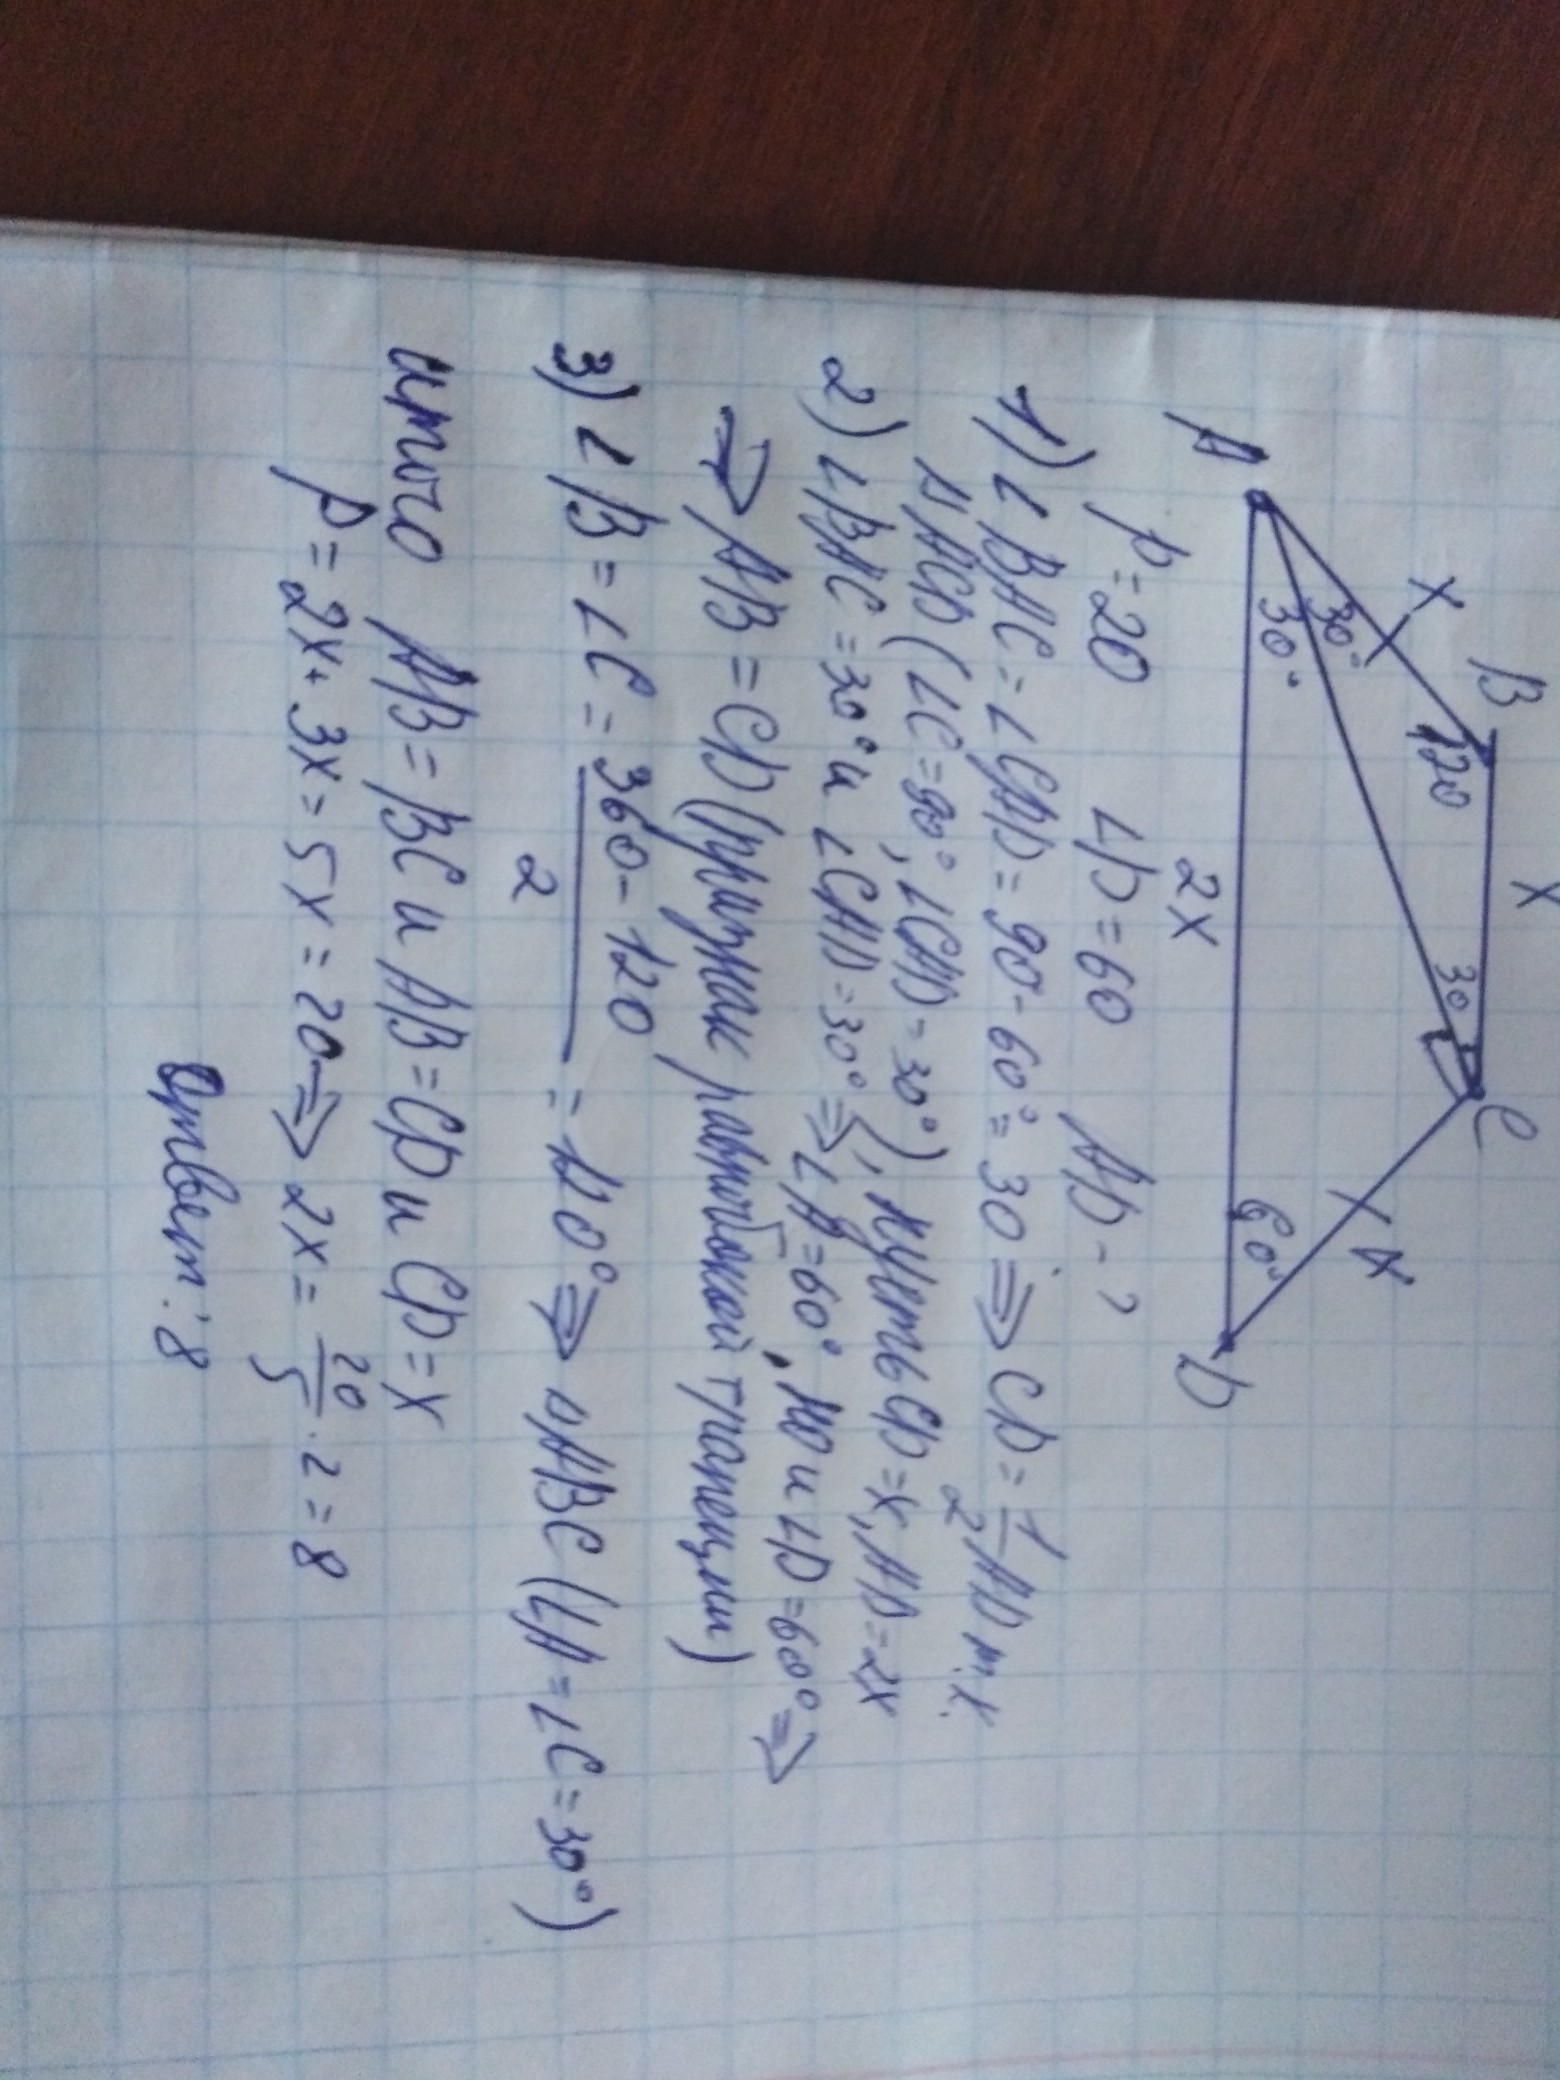 A B C D
x x x 2x
30° 30° 120 30 60°
P=20 ∠D=60 AD-?
1) ∠BAC=∠CAD=90-60°=30 ⇒ CD=1/2 AD т.к.
△ACD (∠C=90°, ∠CAD=30°), пусть CD=x, AD=2x
2) ∠BAC=30° и ∠CAD=30° ⇒ ∠A=60°, но и ∠D=60° ⇒
⇒ AB=CD (признак равнобокой трапеции)
3) ∠B=∠C=360-120/2=120° ⇒ △ABC (∠A=∠C=30°)
итого AB=BC и AB=CD и CD=x
P=2x+3x=5x=20 ⇒ 2x=20/5·2=8
Ответ: 8